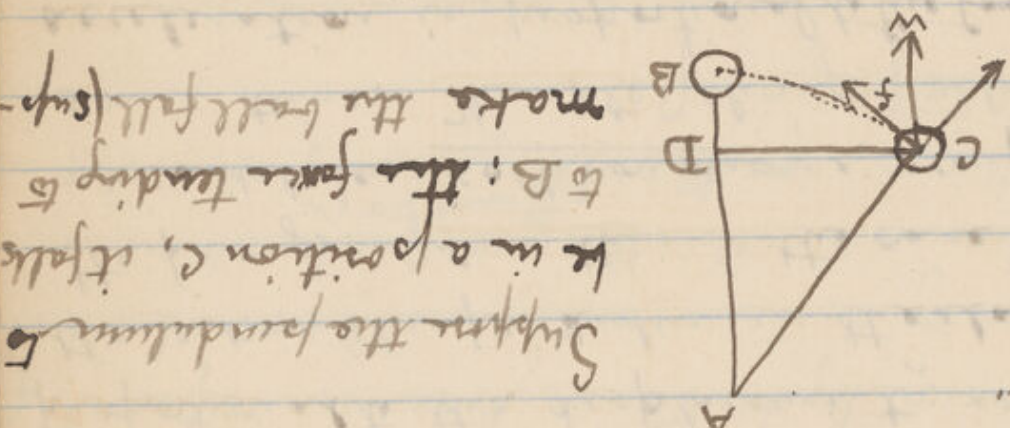 A
Suppose the pendulum to
be in a position C, it falls
to B: the force tending to
make the ball fall (sup-
C
D
B
f
W